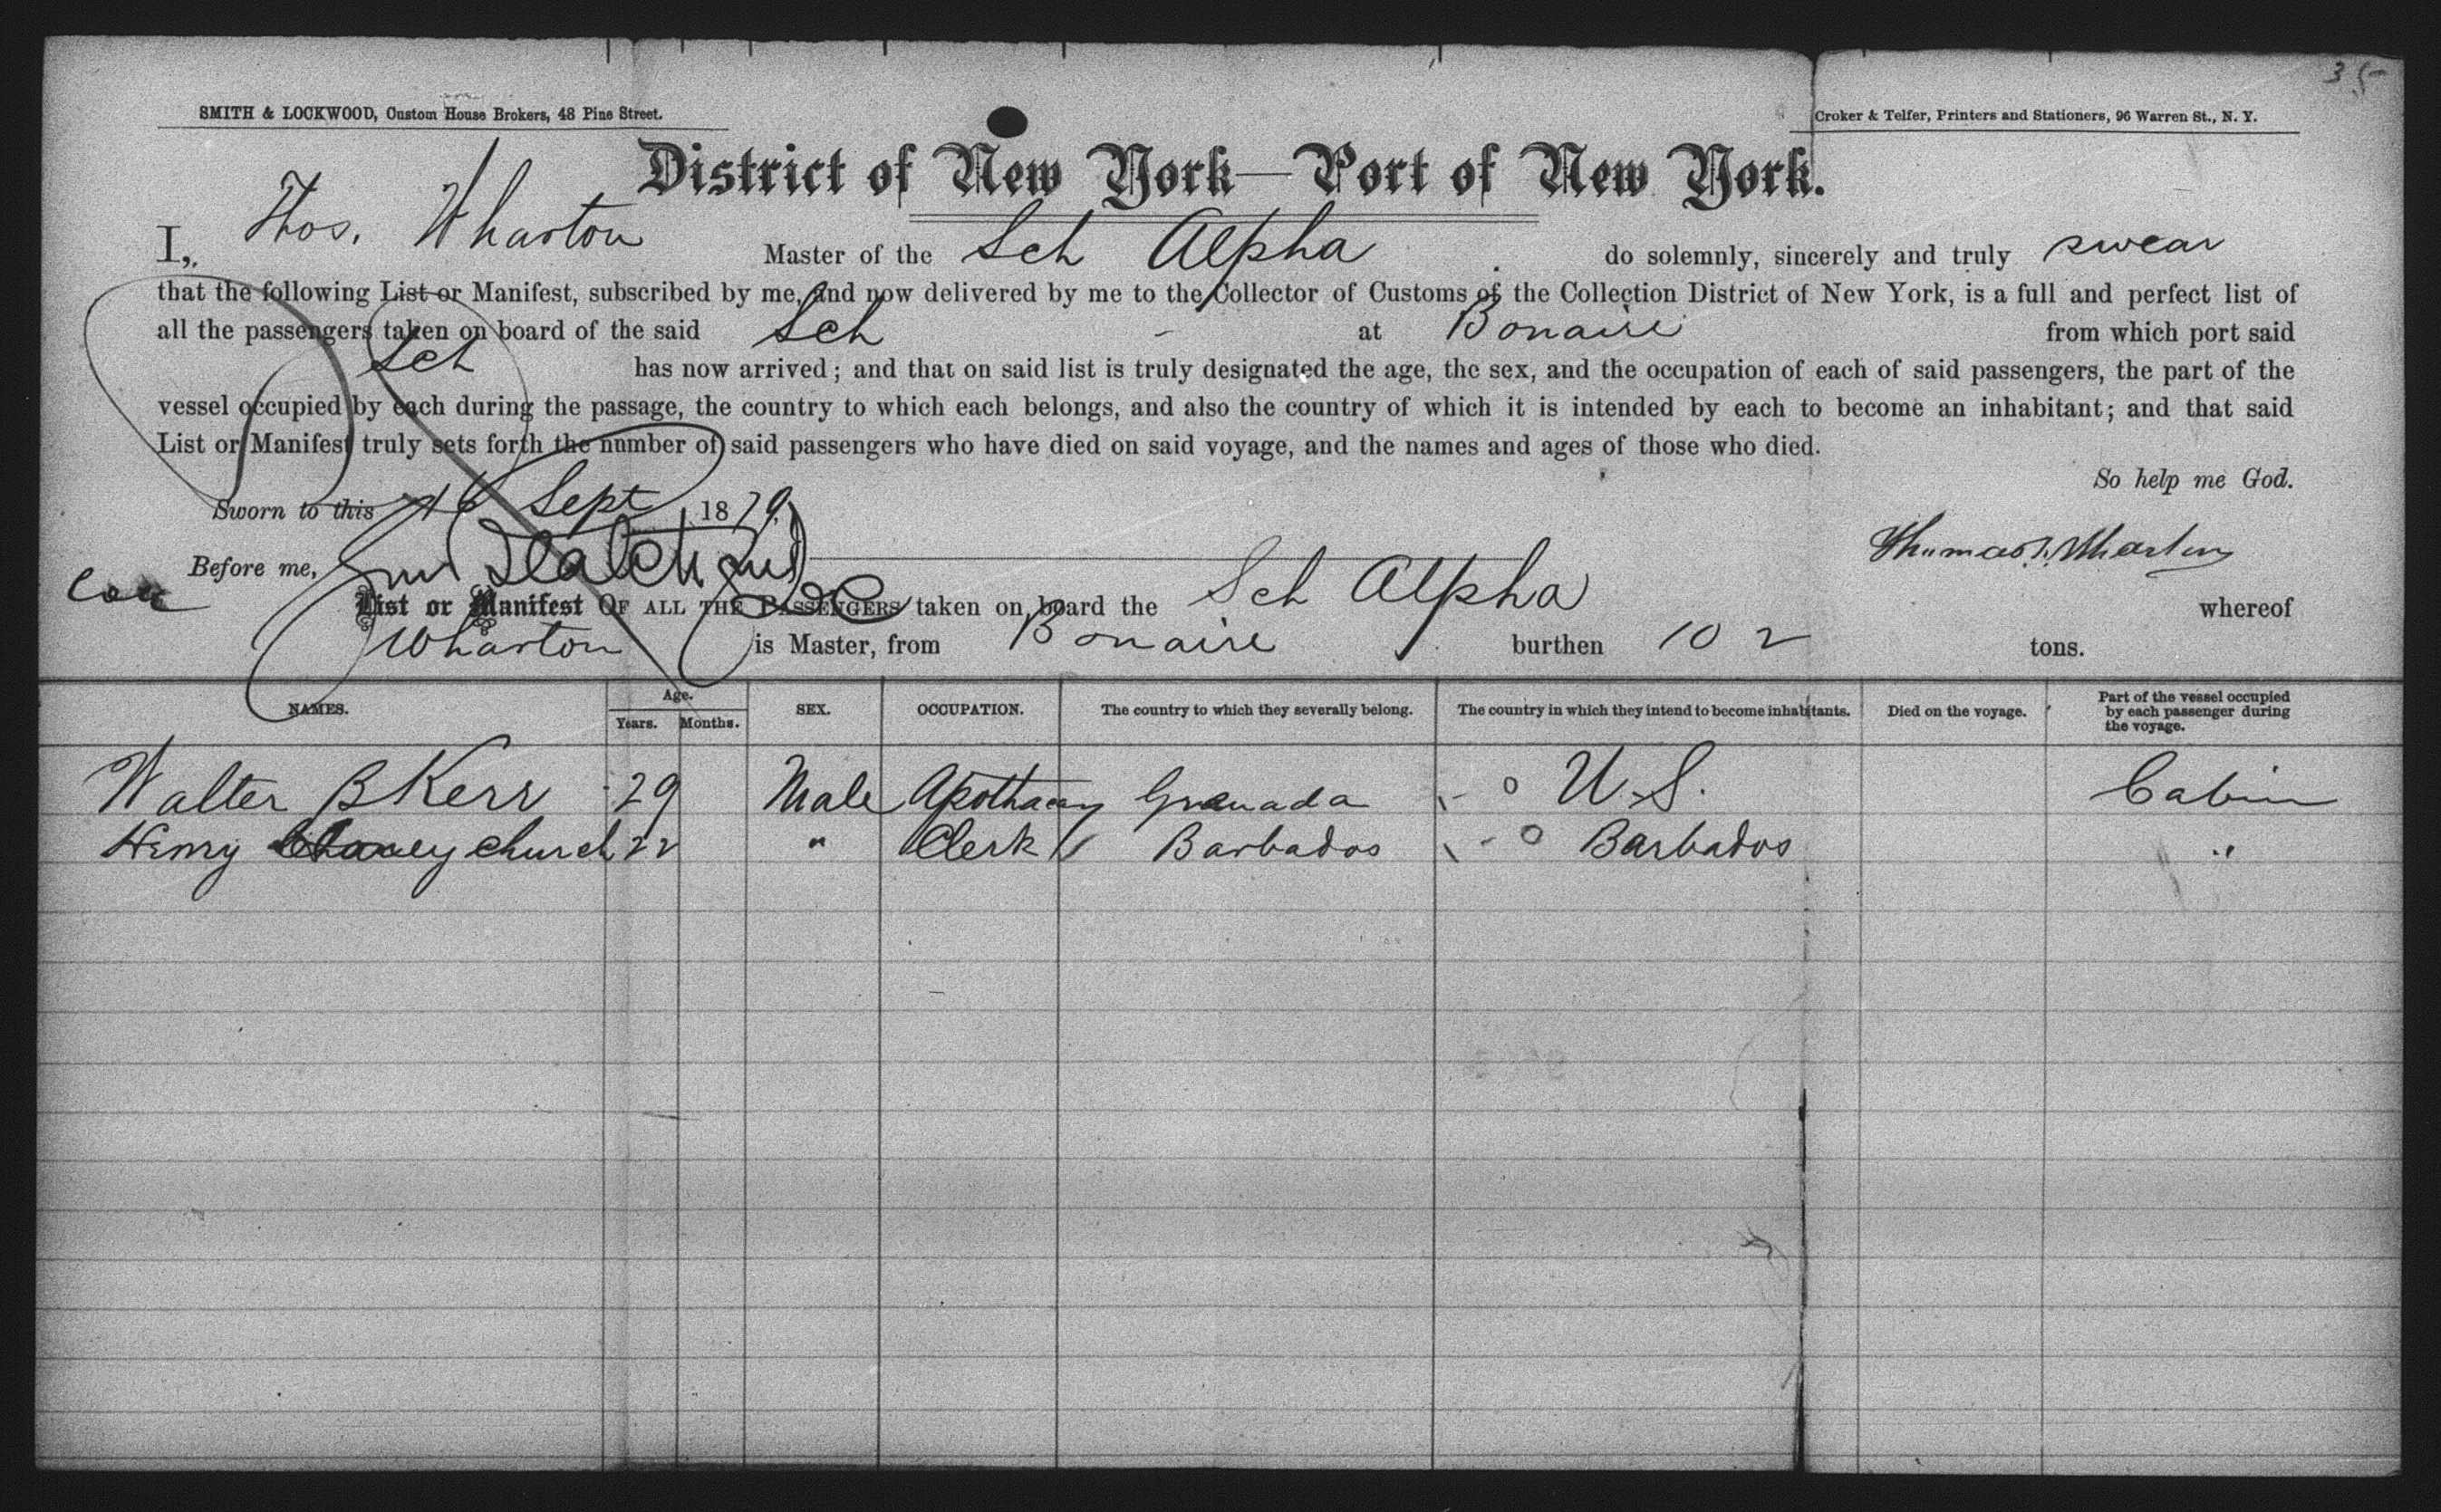 35
SMITH & LOCKWOOD, Custom House Brokers, 48 Pine Street.
Croker & Telfer, Printers and Stationers, 96 Warren St., N. Y.
District of New York—Port of New York.
I, Thos. Wharton Master of the Sch Alpha do solemnly, sincerely and truly swear
that the following List or Manifest, subscribed by me, and now delivered by me to the Collector of Customs of the Collection District of New York, is a full and perfect list of
all the passengers taken on board of the said Sch at Bonaire from which port said
Sch has now arrived; and that on said list is truly designated the age, the sex, and the occupation of each of said passengers, the part of the
vessel occupied by each during the passage, the country to which each belongs, and also the country of which it is intended by each to become an inhabitant; and that said
List or Manifest truly sets forth the number of said passengers who have died on said voyage, and the names and ages of those who died.
So help me God.
Sworn to this 16 Sept 1879
Before me, Thomas Wharton
List or Manifest OF ALL THE PASSENGERS taken on board the Sch Alpha whereof
Wharton is Master, from Bonaire burthen 102 tons.
NAMES. Age. Years. Months. SEX. OCCUPATION. The country to which they severally belong. The country in which they intend to become inhabitants. Died on the voyage. Part of the vessel occupied by each passenger during the voyage.
Walter B Kerr 29 Male Apothacay Grenada U.S. Cabin
Henry church 22 " Clerk Barbados Barbados "